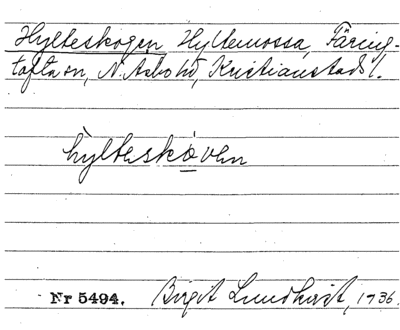 Hylteskogen, Hyltemossa, Färing-
tofta sn, N. Asbo hd, Kristianstads l.
hylteskọven
Nr 5494. Birgit Lundkvist, 1936.